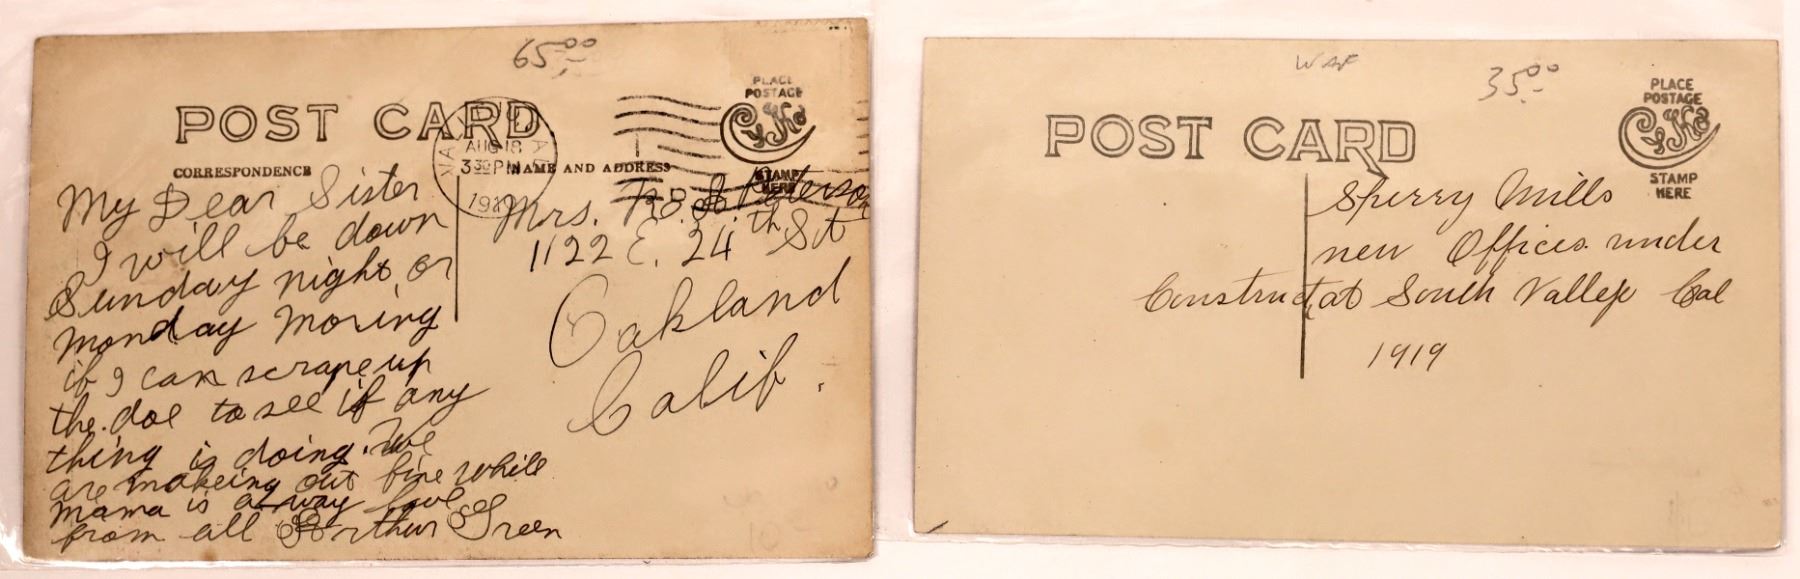 65.00
POST CARD
PLACE
POSTAGE
CYKO
STAMP
HERE
AUG 18
330 PM
CORRESPONDENCE
NAME AND ADDRESS
My Dear Sister
I will be down
Sunday night or
Monday Moring
if I can scrape up
the doe to see if any
thing is doing. We
are makeing out fine while
Mama is away love
from all Arthur Green
Mrs. R. Peterson
1122 E. 24th St
Oakland
Calif.
WAF
35.00
POST CARD
PLACE
POSTAGE
CYKO
STAMP
HERE
Sperry Mills
new Offices under
Construct at South Vallejo Cal
1919